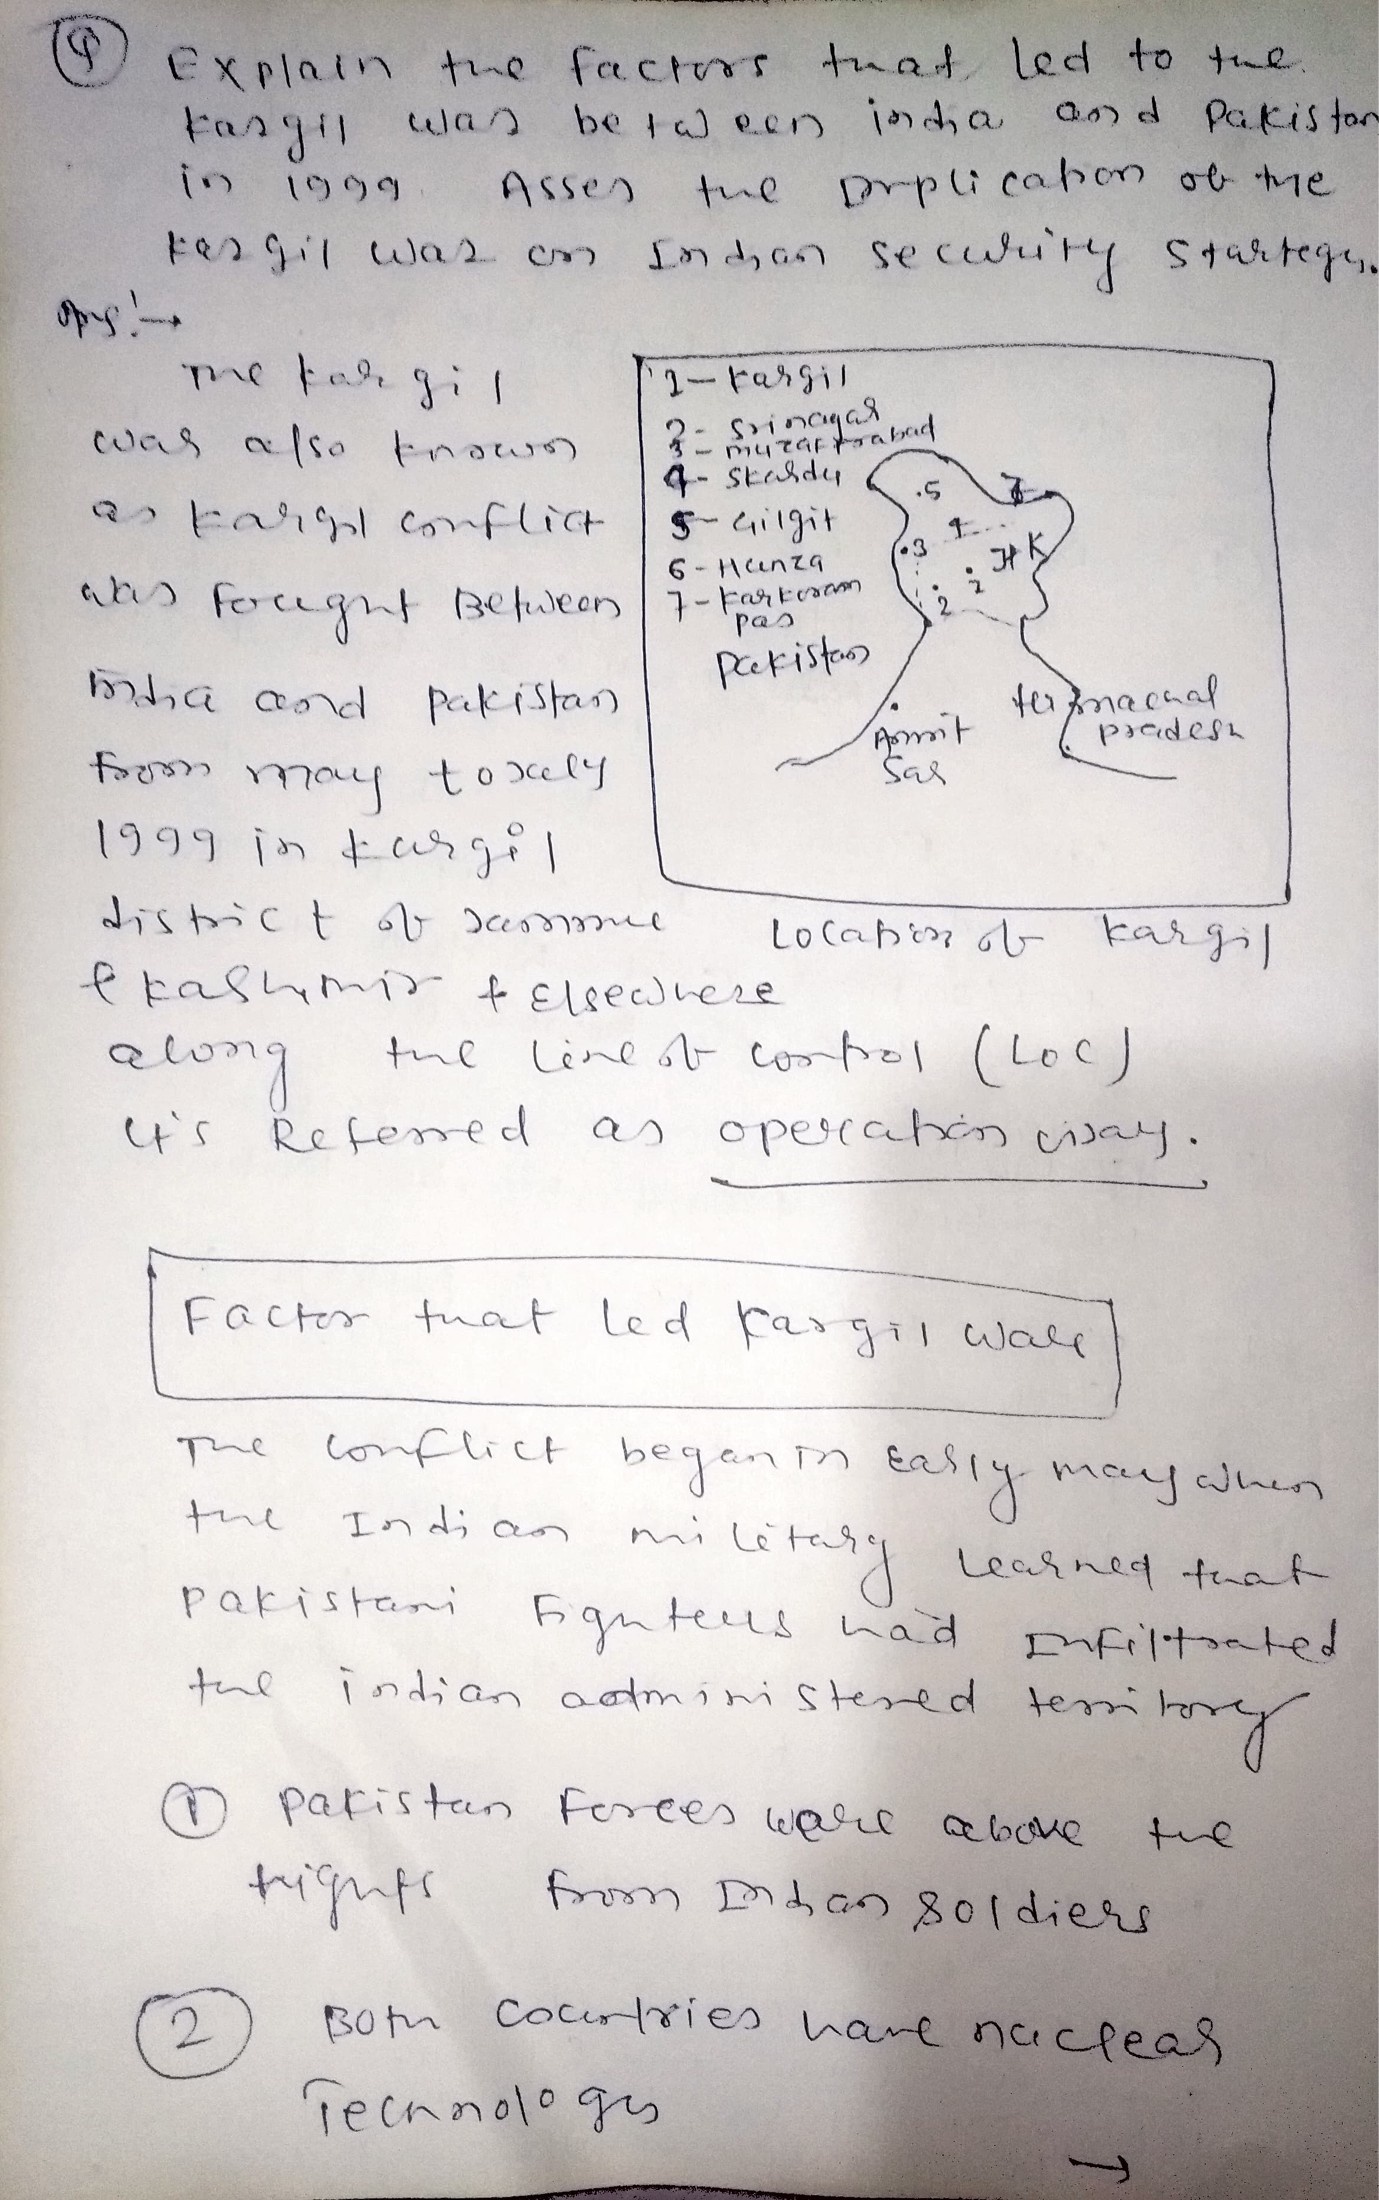 4 Explain the factors that led to the
Kargil war between india and Pakistan
in 1999. Asses the Implication of the
Kargil war on Indian security Startegy.
Ans:→
The Kargil
war also known
as Kargil conflict
was fought Between
India and Pakistan
from may to July
1999 in Kargil
district of Jammu
& Kashmir & Elsewhere
along the line of control (LOC)
It's Referred as operation vijay.
1- Kargil
2- Srinagar
3- muzaffrabad
4- Skardu
5- Gilgit
6- Hunza
7- Karkoram
pas
Pakistan
.5 7
4
.3 J&K
2
2
Amrit
Sar
Himachal
pradesh
Location of Kargil
Factor that led Kargil war
The conflict began in Early may when
the Indian military learned that
Pakistani Fighters had Infiltrated
the indian administered territory
1 Pakistan Forces were above the
hights from Indian soldiers
2 Both countries have nuclear
Technology
→